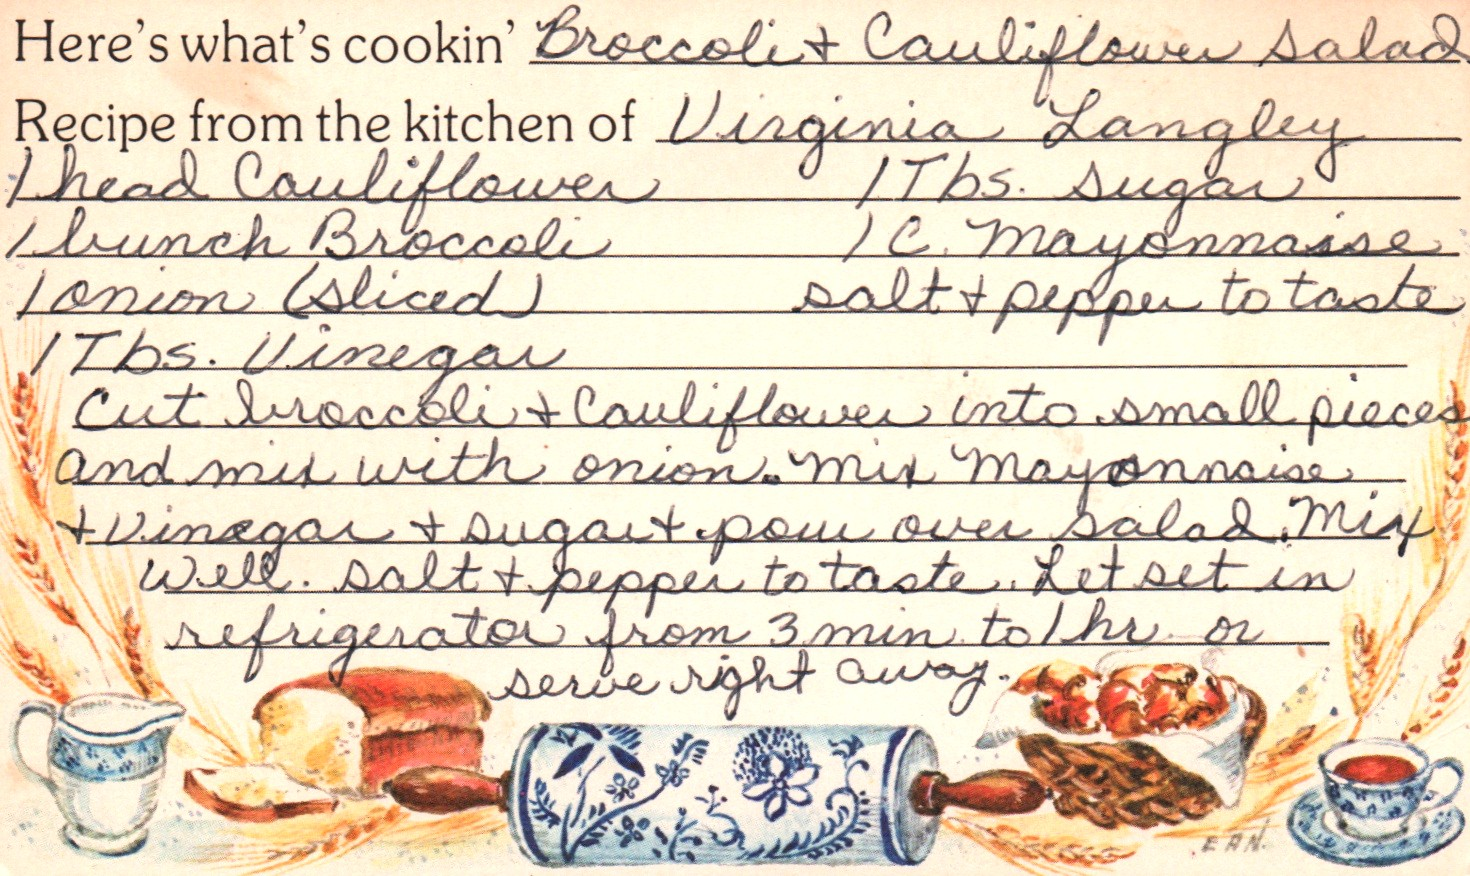 Here's what's cookin' Broccoli + Cauliflower Salad
Recipe from the kitchen of Virginia Langley
1 head Cauliflower 1 Tbs. sugar
1 bunch Broccoli 1 C. Mayonnaise
1 onion (sliced) salt + pepper to taste
1 Tbs. Vinegar
Cut broccoli + Cauliflower into small pieces
and mix with onion. Mix Mayonnaise
+ Vinegar + sugar + pour over salad. Mix
Well. salt + pepper to taste. Let set in
refrigerator from 3 min to 1 hr or
serve right away.
EAN.